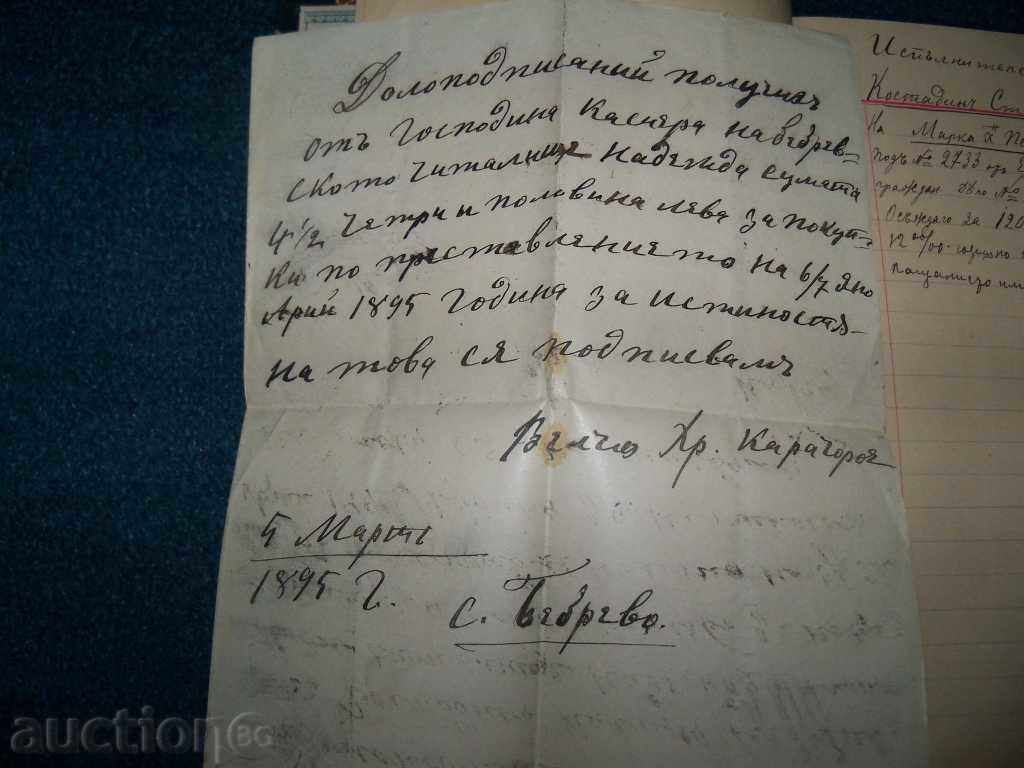 Долоподписаний получихъ
отъ Господина Касиера на Бебрев-
ското читалище Надежда сумата
4 1/2 Четри и половина лева за покуп-
ки по преставлението на 6/7 Яно
Арий 1895 година за истиностя-
на това ся подписвамъ
Вълчо Хр. Карагьо
5 Мартъ
1895 Г.
с. Бебрево.
Костадинъ Ст
На Марка х
подъ № 2733
граждан. дѣло №
за 120
auction BG